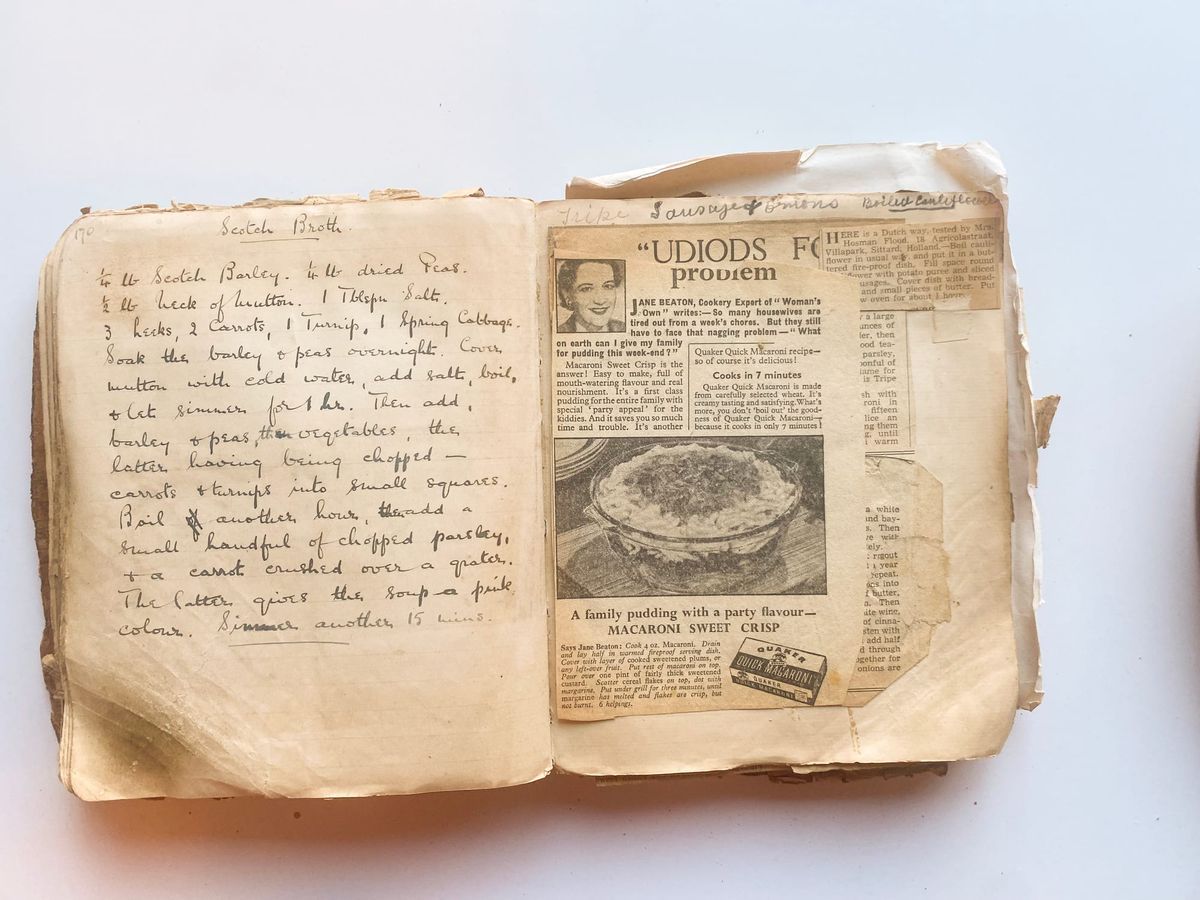 170
Scotch Broth.
¼ lb Scotch Barley. ¼ lb dried Peas.
½ lb Neck of Mutton. 1 Tblspn Salt.
3 Leeks, 2 Carrots, 1 Turnip, 1 Spring Cabbage.
Soak the barley & peas overnight. Cover
mutton with cold water, add salt, boil,
& let simmer for 1 hr. Then add,
barley & peas, then vegetables, the
latter having being chopped —
carrots & turnips into small squares.
Boil another hour, add a
small handful of chopped parsley,
& a carrot crushed over a grater.
The latter gives the soup a pink
colour. Simmer another 15 mins.
Tripe Sausages & Onions Boiled Cauliflower
"UDIODS FO
problem
JANE BEATON, Cookery Expert of "Woman's
Own" writes:— So many housewives are
tired out from a week's chores. But they still
have to face that nagging problem — "What
on earth can I give my family
for pudding this week-end?"
Macaroni Sweet Crisp is the
answer! Easy to make, full of
mouth-watering flavour and real
nourishment. It's a first class
pudding for the entire family with
special 'party appeal' for the
kiddies. And it saves you so much
time and trouble. It's another
Quaker Quick Macaroni recipe—
so of course it's delicious!
Cooks in 7 minutes
Quaker Quick Macaroni is made
from carefully selected wheat. It's
creamy tasting and satisfying. What's
more, you don't 'boil out' the good-
ness of Quaker Quick Macaroni—
because it cooks in only 7 minutes!
A family pudding with a party flavour—
MACARONI SWEET CRISP
Says Jane Beaton: Cook 4 oz. Macaroni. Drain
and lay half in warmed fireproof serving dish.
Cover with layer of cooked sweetened plums, or
any left-over fruit. Put rest of macaroni on top.
Pour over one pint of fairly thick sweetened
custard. Scatter cereal flakes on top, dot with
margarine. Put under grill for three minutes, until
margarine has melted and flakes are crisp, but
not burnt. 6 helpings.
QUAKER
QUICK MACARONI
QUAKER
QUICK MACARONI
HERE is a Dutch way, tested by Mrs.
Hosman Flood, 18 Agricolastraat,
Villapark, Sittard, Holland.—Boil cauli-
flower in usual way, and put it in a but-
tered fire-proof dish. Fill space round
flower with potato puree and sliced
usages. Cover dish with bread-
and small pieces of butter. Put
w oven for about 1 hour.
y a large
unces of
er, then
ood tea-
parsley,
onful of
ame for
is Tripe
sh with
roni in
fifteen
lice an
ng them
g, until
l warm
a white
and bay-
s. Then
ve with
ely.
rigout
l year
repeat.
ons into
f butter,
n. Then
ite wine,
of cinna-
sten with
add half
d through
ogether for
onions are